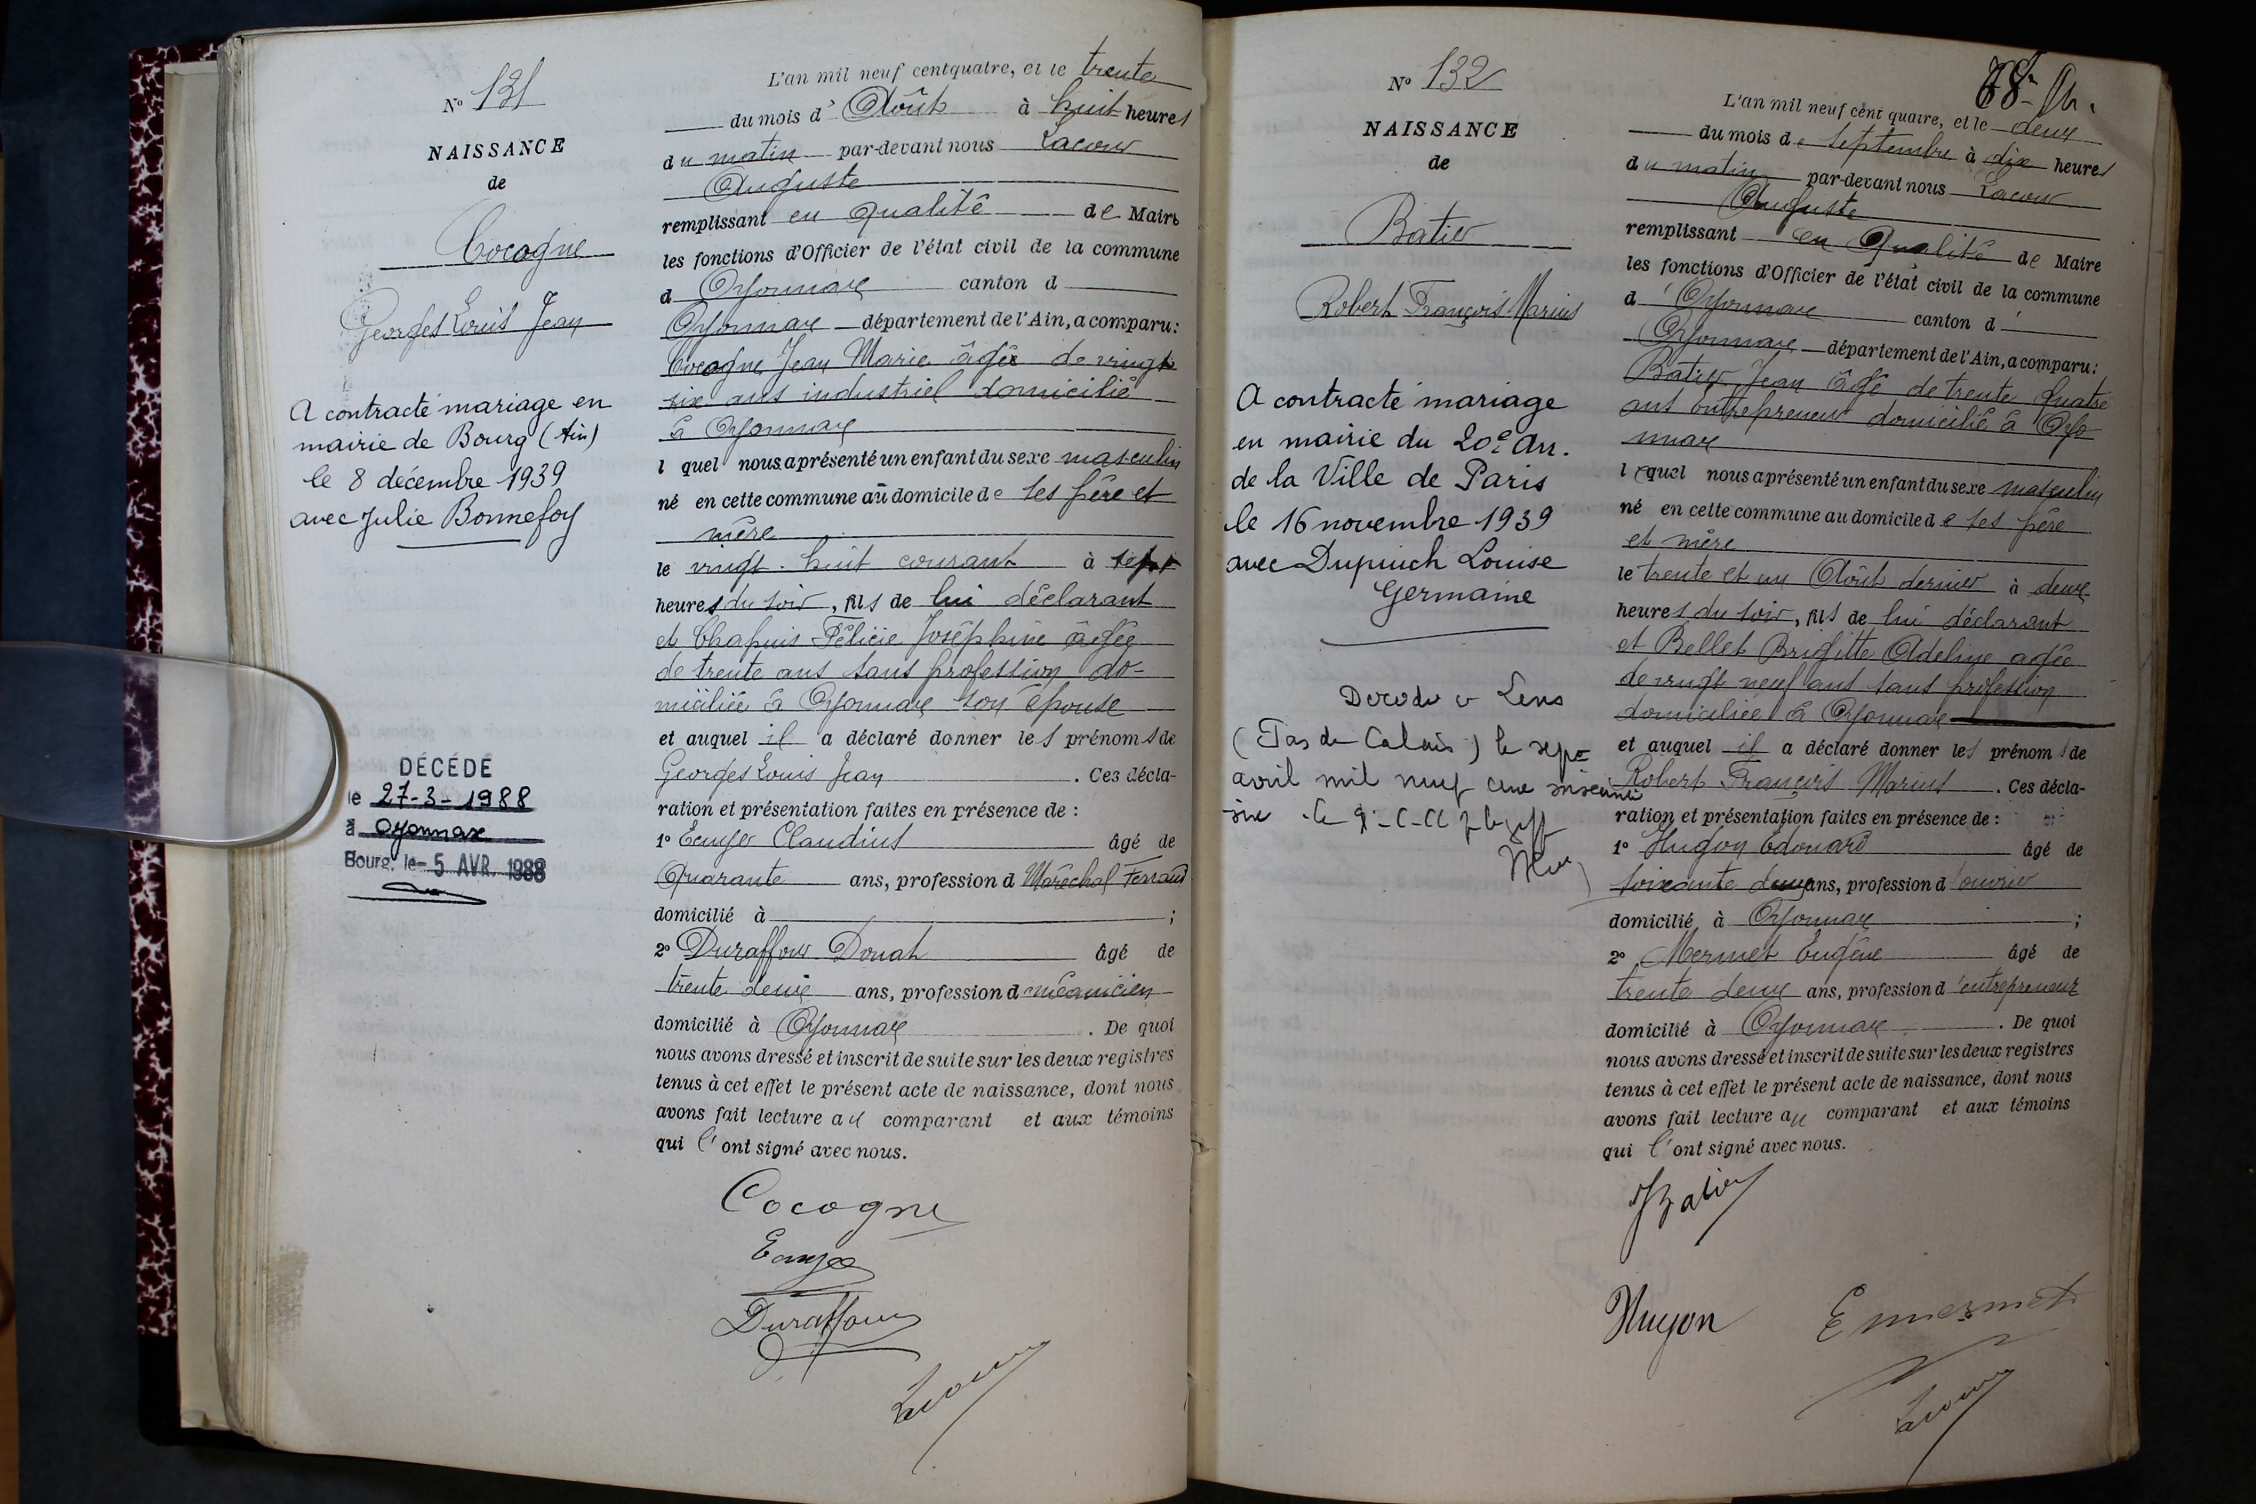 N° 131
NAISSANCE
de
Cocagne
Georges Louis Jean
A contracté mariage en
mairie de Bourg (Ain)
le 8 décembre 1939
avec Julie Bonnefoy
DÉCÉDÉ
le 27-3-1988
à Oyonnax
Bourg, le - 5 AVR. 1988
L'an mil neuf cent quatre, et le trente
du mois d' Août à huit heures
du matin par-devant nous Lacour
Auguste
remplissant en qualité de Maire
les fonctions d'Officier de l'état civil de la commune
d Oyonnax canton d
Oyonnax département de l'Ain, a comparu:
Cocagne Jean Marie âgé de vingt
six ans industriel domicilié
à Oyonnax
l quel nous a présenté un enfant du sexe masculin
né en cette commune au domicile de ses père et
mère
le vingt-huit courant à sept
heures du soir, fils de lui déclarant
et Chapuis Félicie Joséphine âgée
de trente ans sans profession do-
miciliée à Oyonnax son épouse
et auquel il a déclaré donner les prénoms de
Georges Louis Jean. Ces décla-
ration et présentation faites en présence de :
1° Ecuyer Claudius âgé de
Quarante ans, profession d Maréchal Ferrand
domicilié à ;
2° Duraffour Donat âgé de
trente deux ans, profession de mécanicien
domicilié à Oyonnax. De quoi
nous avons dressé et inscrit de suite sur les deux registres
tenus à cet effet le présent acte de naissance, dont nous
avons fait lecture au comparant et aux témoins
qui l' ont signé avec nous.
Cocagne
Ecuyer
Duraffour
Lacour
N° 132
NAISSANCE
de
Batier
Robert François Marius
A contracté mariage
en mairie du 20e Arr.
de la Ville de Paris
le 16 novembre 1939
avec Dupuich Louise
Germaine
Décédé à Lens
(Pas de Calais) le sept
avril mil neuf cent soixante
68
L'an mil neuf cent quatre, et le deux
du mois de septembre à dix heures
du matin par-devant nous Lacour
Auguste
remplissant en qualité de Maire
les fonctions d'Officier de l'état civil de la commune
d' Oyonnax canton d'
Oyonnax département de l'Ain, a comparu:
Batier Jean âgé de trente quatre
ans Entrepreneur domicilié à Oyo
nnax
lequel nous a présenté un enfant du sexe masculin
né en cette commune au domicile de ses père
et mère
le trente et un Août dernier à deux
heures du soir, fils de lui déclarant
et Bellet Brigitte Adeline agée
de vingt neuf ans sans profession
domiciliée à Oyonnax
et auquel il a déclaré donner les prénoms de
Robert François Marius. Ces décla-
ration et présentation faites en présence de :
1° Hugon Edouard âgé de
soixante deux ans, profession d'ouvrier
domicilié à Oyonnax ;
2° Mermet Eugène âgé de
trente deux ans, profession d'entrepreneur
domicilié à Oyonnax. De quoi
nous avons dressé et inscrit de suite sur les deux registres
tenus à cet effet le présent acte de naissance, dont nous
avons fait lecture au comparant et aux témoins
qui l' ont signé avec nous.
JBatier
Hugon E mermet
Lacour